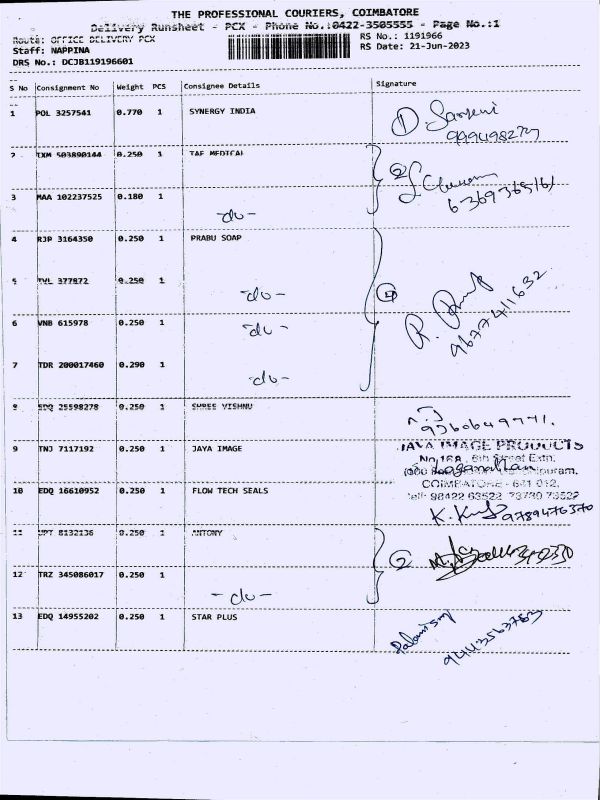 THE PROFESSIONAL COURIERS, COIMBATORE
Delivery Runsheet - PCX - Phone No.:0422-3505555 - Page No.:1
Route: OFFICE DELIVERY PCX
RS No.: 1191966
Staff: NAPPINA
RS Date: 21-Jun-2023
DRS No.: DCJB119196601
S No Consignment No Weight PCS Consignee Details Signature
1 POL 3257541 0.770 1 SYNERGY INDIA
2 TXM 503890144 0.250 1 TAF MEDICAL
②
3 MAA 102237525 0.180 1 -do-
6369365161
4 RJP 3164350 0.250 1 PRABU SOAP
5 TVL 377872 0.250 1 -do-
④
6 VNB 615978 0.250 1 -do-
9677411632
7 TDR 200017460 0.290 1 -do-
8 EDQ 25598278 0.250 1 SHREE VISHNU
9 TNJ 7117192 0.250 1 JAYA IMAGE
JAYA IMAGE PRODUCTS
No.16A, 6th Street Extn.
COIMBATORE - 641 012.
10 EDQ 16610952 0.250 1 FLOW TECH SEALS
9789476370
11 8132136 0.250 1 ANTONY
②
12 TRZ 345086017 0.250 1 -do-
13 EDQ 14955202 0.250 1 STAR PLUS
9443563763